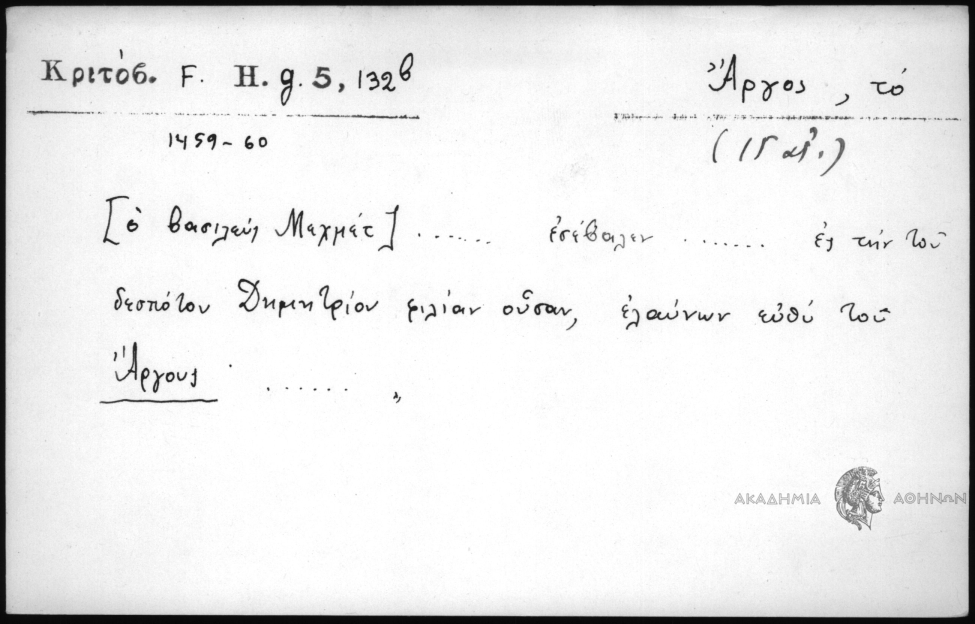 Κριτόβ. F. H. g. 5, 132b
Ἄργος, τό
1459-60
(15 αἰ.)
[ὁ βασιλεύς Μεχμέτ] ....... ἐσέβαλεν ....... ἐς τήν τοῦ
δεσπότου Δημητρίου φιλίαν οὖσαν, ἐλαύνων εὐθύ τοῦ
Ἄργους · ...... „
ΑΚΑΔΗΜΙΑ ΑΘΗΝΩΝ